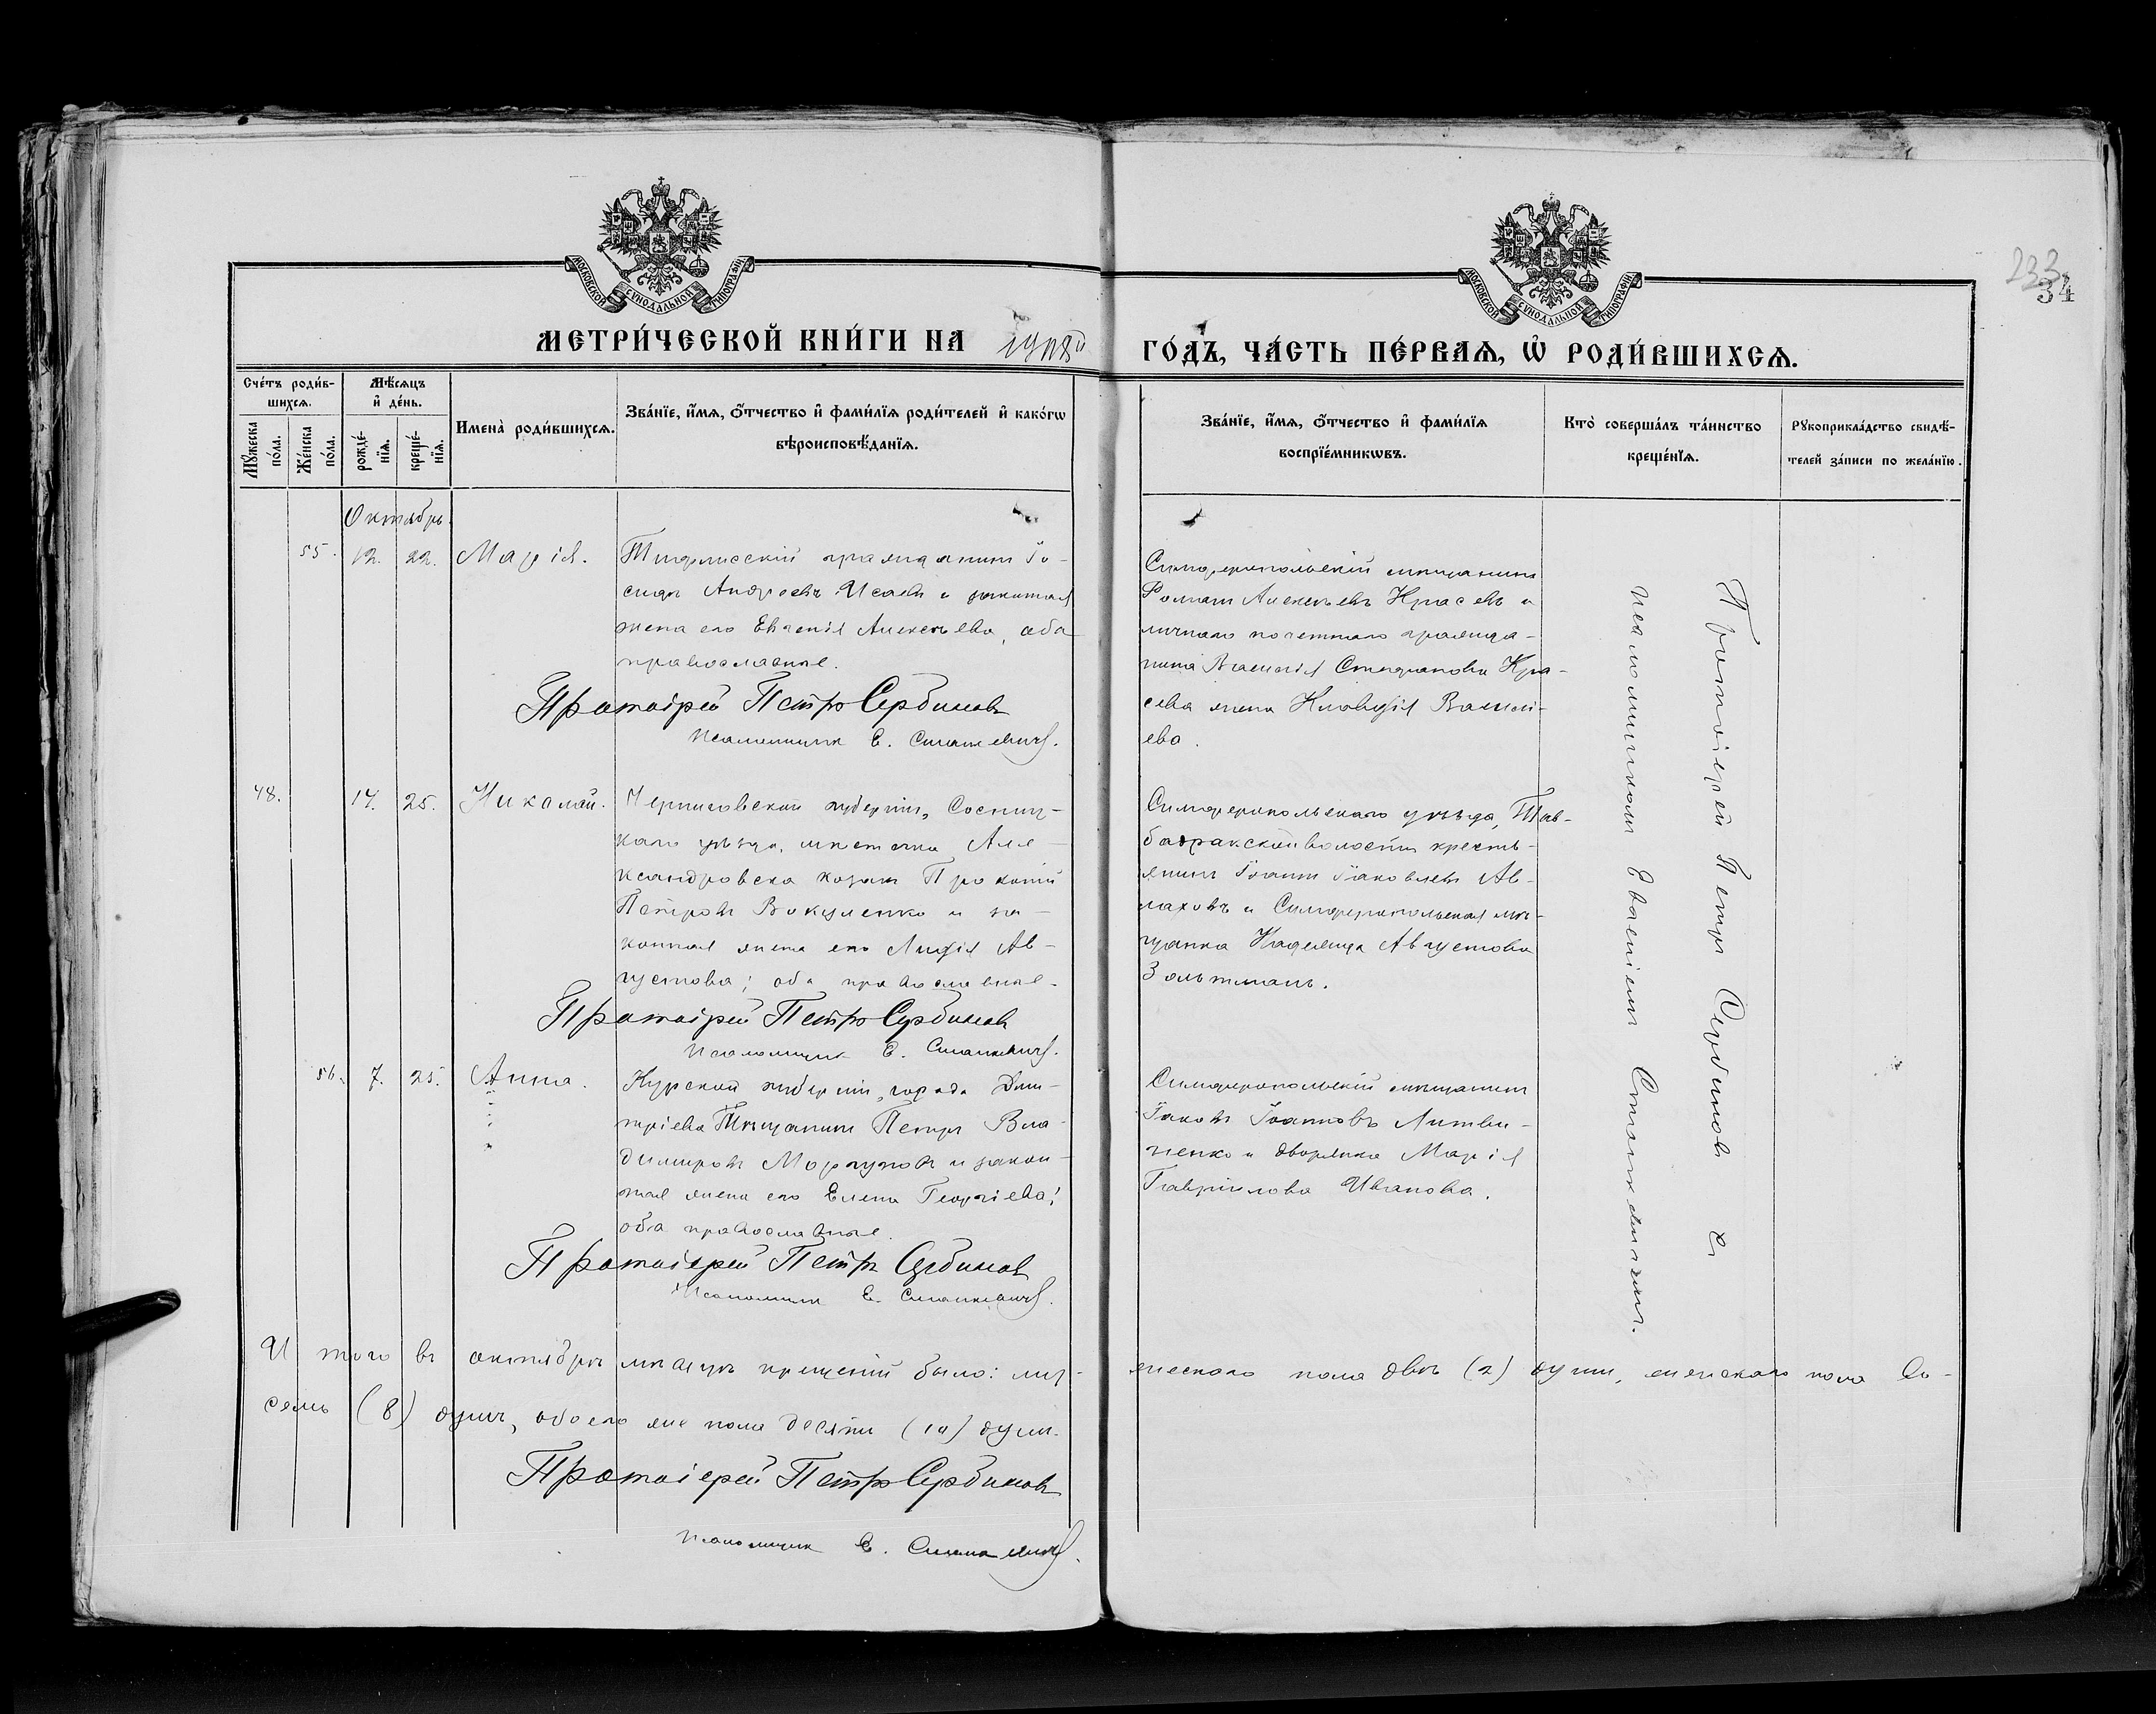 233
34
МОСКОВСКОЙ СѴНОДАЛЬНОЙ ТИПОГРАФІИ
МОСКОВСКОЙ СѴНОДАЛЬНОЙ ТИПОГРАФІИ
МЕТРИ́ЧЕСКОЙ КНИ́ГИ НА 1908й
ГО́ДЪ, ЧА́СТЬ ПЕ́РВАѦ, Ѡ҆ РОДИ́ВШИХСѦ.
Сче́тъ роди́в-
шихсѧ.
Мꙋ́жеска по́ла.
Же́нска по́ла.
Мѣ́сѧцъ
и҆ де́нь.
рожде́-
нїѧ.
креще́-
нїѧ.
Имена̀ роди́вшихсѧ.
Зва́нїе, и҆́мѧ, ѻ҆́тчество и҆ фами́лїѧ роди́телей и҆ како́гѡ
вѣроисповѣ́данїѧ.
Зва́нїе, и҆́мѧ, ѻ҆́тчество и҆ фами́лїѧ
воспрїе́мникѡвъ.
Кто̀ соверша́лъ та́инство
креще́нїѧ.
Рꙋкоприкла́дство свидѣ́-
телей за́писи по жела́нїю.
Октябрь
55. 12. 22. Марія.
Тифлисскій гражданинъ Іо-
сифъ Андреевъ Исаевъ и законная
жена его Евгенія Алексѣева, оба
православные.
Протоіерей Петръ Сербиновъ
Псаломщикъ Е. Станкевичъ.
Симферопольскій мѣщанинъ
Романъ Алексѣевъ Красевъ и
личнаго почетнаго гражда-
нина Василія Стефанова Кра-
сева жена Клавдія Василі-
ева.
48. 14. 25. Николай.
Черниговской губерніи, Сосниц-
каго уѣзда, мѣстечка Але-
ксандровска козакъ Прокопій
Петровъ Вакуленко и за-
конная жена его Лидія Ав-
густова; оба православные.
Протоіерей Петръ Сербиновъ
Псаломщикъ Е. Станкевичъ.
Симферопольскаго уѣзда, Тав-
бадракской волости кресть-
янинъ Іоаннъ Іаковлевъ Ав-
лаховъ и Симферопольская мѣ-
щанка Надежда Августова
Зальтманъ.
56. 7. 25. Анна.
Курской губерніи, города Дми-
тріева Мѣщанинъ Петръ Вла-
димировъ Моргуновъ и закон-
ная жена его Елена Георгіева;
оба православные.
Протоіерей Петръ Сербиновъ
Псаломщикъ Е. Станкевичъ.
Симферопольскій мѣщанинъ
Іаковъ Іоанновъ Литви-
ненко и дворянка Марія
Гавріилова Иванова.
Протоіерей Петръ Сербиновъ съ
псаломщикомъ Евгеніемъ Станкевичемъ.
Итого въ октябрѣ мѣсяцѣ крещеній было: муж-
ескаго пола двѣ (2) души, женскаго пола во-
семь (8) душъ, обоего же пола десять (10) душъ.
Протоіерей Петръ Сербиновъ
Псаломщикъ Е. Станкевичъ.